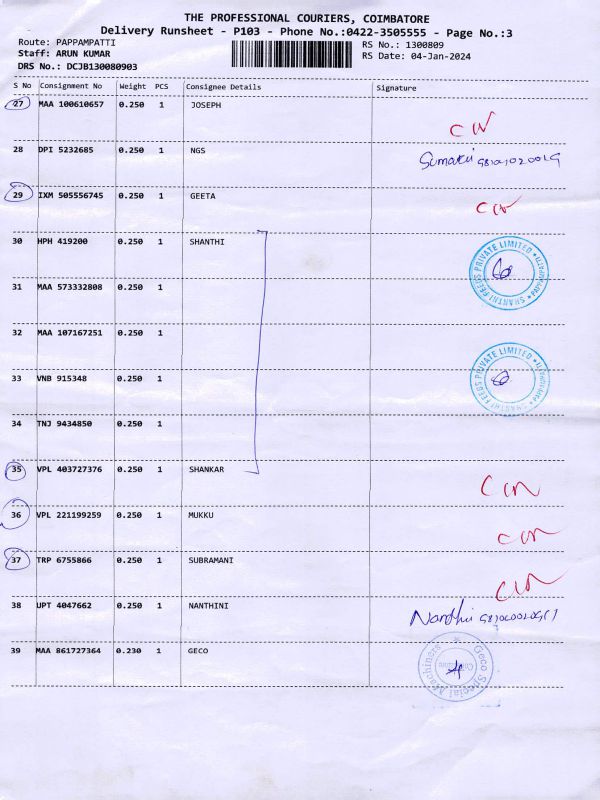 THE PROFESSIONAL COURIERS, COIMBATORE
Delivery Runsheet - P103 - Phone No.:0422-3505555 - Page No.:3
Route: PAPPAMPATTI RS No.: 1300809
Staff: ARUN KUMAR RS Date: 04-Jan-2024
DRS No.: DCJB130080903
S No Consignment No Weight PCS Consignee Details Signature
27 MAA 100610657 0.250 1 JOSEPH
28 DPI 5232685 0.250 1 NGS
29 IXM 505556745 0.250 1 GEETA
30 HPH 419200 0.250 1 SHANTHI
SHANTHI FEEDS PRIVATE LIMITED
31 MAA 573332808 0.250 1
32 MAA 107167251 0.250 1
SHANTHI FEEDS PRIVATE LIMITED
33 VNB 915348 0.250 1
34 TNJ 9434850 0.250 1
35 VPL 403727376 0.250 1 SHANKAR
36 VPL 221199259 0.250 1 MUKKU
37 TRP 6755866 0.250 1 SUBRAMANI
38 UPT 4047662 0.250 1 NANTHINI
39 MAA 861727364 0.230 1 GECO
Geco Special Machiners